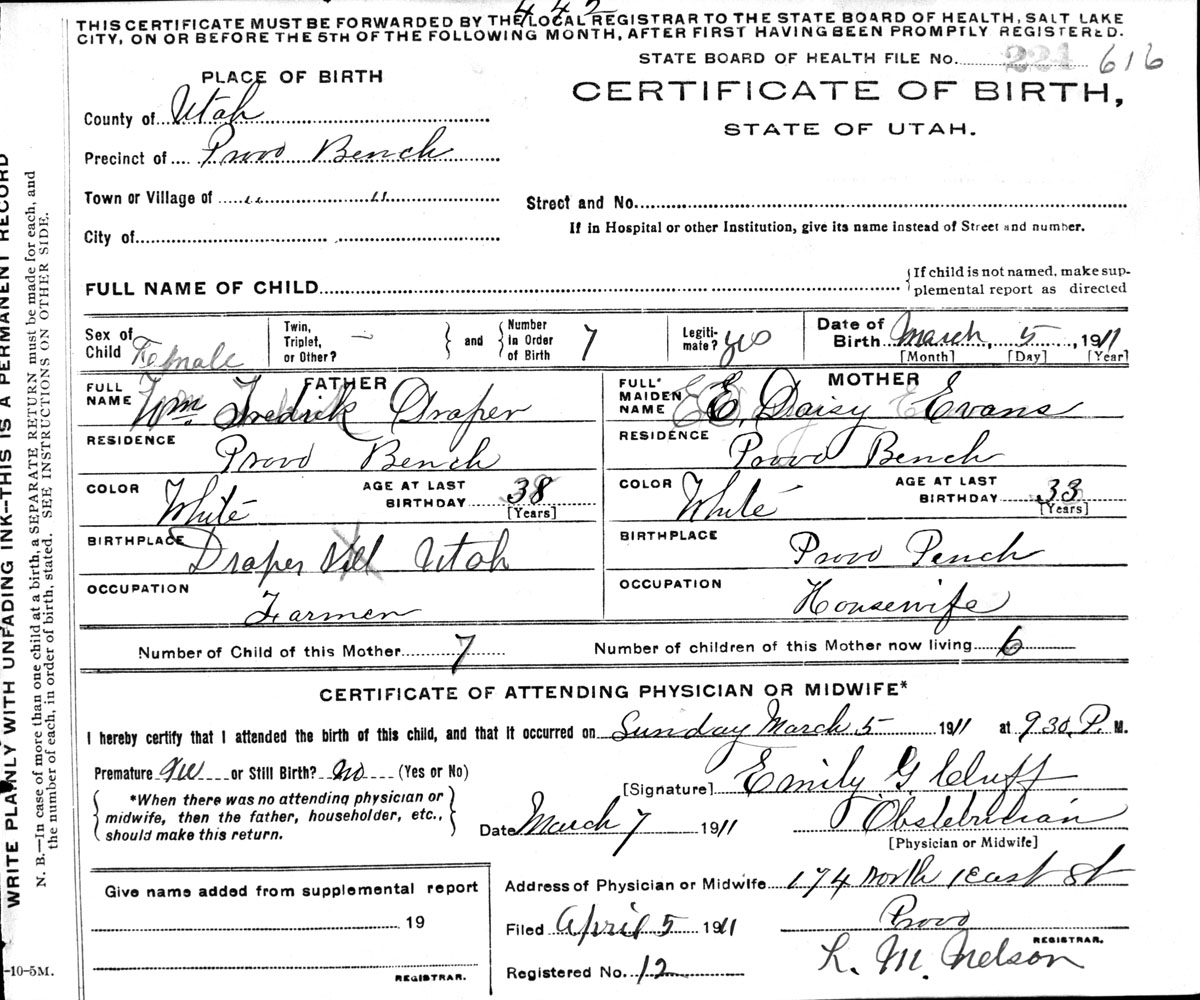 442
THIS CERTIFICATE MUST BE FORWARDED BY THE LOCAL REGISTRAR TO THE STATE BOARD OF HEALTH, SALT LAKE
CITY, ON OR BEFORE THE 5TH OF THE FOLLOWING MONTH, AFTER FIRST HAVING BEEN PROMPTLY REGISTERED.
STATE BOARD OF HEALTH FILE No. 221 616
PLACE OF BIRTH
CERTIFICATE OF BIRTH,
STATE OF UTAH.
County of Utah
Precinct of Provo Bench
Town or Village of " "
Street and No.
If in Hospital or other Institution, give its name instead of Street and number.
City of
FULL NAME OF CHILD
{If child is not named, make sup-
plemental report as directed
Sex of Child Female
Twin, Triplet, or Other? —
} and { Number in Order of Birth 7
Legiti-mate? yes
Date of Birth March, 5, 1911
[Month] [Day] [Year]
FATHER
FULL NAME Wm. Fredrick Draper
RESIDENCE Provo Bench
COLOR White AGE AT LAST BIRTHDAY 38 [Years]
BIRTHPLACE Draper Utah
OCCUPATION Farmer
MOTHER
FULL MAIDEN NAME E. Daisy Evans
RESIDENCE Provo Bench
COLOR White AGE AT LAST BIRTHDAY 33 [Years]
BIRTHPLACE Provo Pench
OCCUPATION Housewife
Number of Child of this Mother 7 Number of children of this Mother now living 6
CERTIFICATE OF ATTENDING PHYSICIAN OR MIDWIFE*
I hereby certify that I attended the birth of this child, and that it occurred on Sunday March 5 1911 at 9 30 P. M.
Premature or Still Birth? No (Yes or No)
{ *When there was no attending physician or
midwife, then the father, householder, etc.,
should make this return. }
[Signature] Emily G Cluff
Date March 7 1911 Obstetrician
[Physician or Midwife]
Give name added from supplemental report
19
REGISTRAR.
Address of Physician or Midwife 174 North 1 East St
Provo
Filed April 5 1911
REGISTRAR.
L. M. Nelson
Registered No. 12
WRITE PLAINLY WITH UNFADING INK—THIS IS A PERMANENT RECORD
N. B.—In case of more than one child at a birth, a SEPARATE RETURN must be made for each, and
the number of each, in order of birth, stated. SEE INSTRUCTIONS ON OTHER SIDE.
-10-5M.